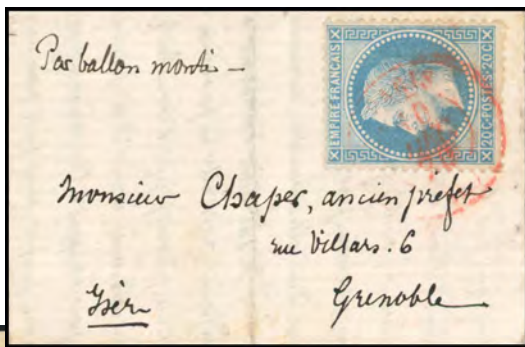 Par ballon monté —
EMPIRE FRANÇAIS
20C·POSTES·20C
Monsieur Chaper, ancien préfet
rue Villars. 6
Isère
Grenoble